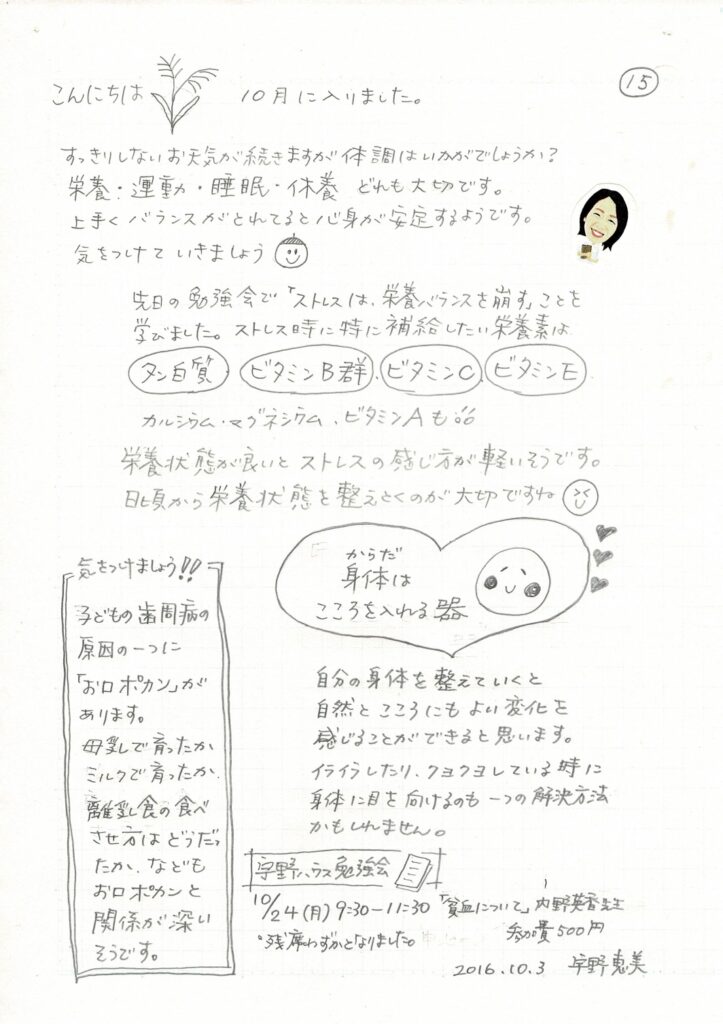 ⑮
こんにちは 10月に入りました。
すっきりしないお天気が続きますが体調はいかがでしょうか?
栄養・運動・睡眠・休養 どれも大切です。
上手くバランスがとれてると心身が安定するようです。
気をつけていきましょう
先日の勉強会で「ストレスは、栄養バランスを崩す」ことを
学びました。ストレス時に特に補給したい栄養素は
タン白質、ビタミンB群、ビタミンC、ビタミンE
カルシウム・マグネシウム、ビタミンAも
栄養状態が良いとストレスの感じ方が軽いそうです。
日頃から栄養状態を整えとくのが大切ですね
からだ
身体は
こころを入れる器
気をつけましょう!!
子どもの歯周病の
原因の一つに
「お口ポカン」が
あります。
母乳で育ったか
ミルクで育ったか、
離乳食の食べ
させ方はどうだっ
たか、なども
お口ポカンと
関係が深い
そうです。
自分の身体を整えていくと
自然とこころにもよい変化を
感じることができると思います。
イライラしたり、クヨクヨしている時に
身体に目を向けるのも一つの解決方法
かもしれません。
宇野ハウス勉強会
10/24(月) 9:30-11:30 「貧血について」内野英香先生
参加費500円
・残席わずかとなりました。
2016.10.3 宇野恵美